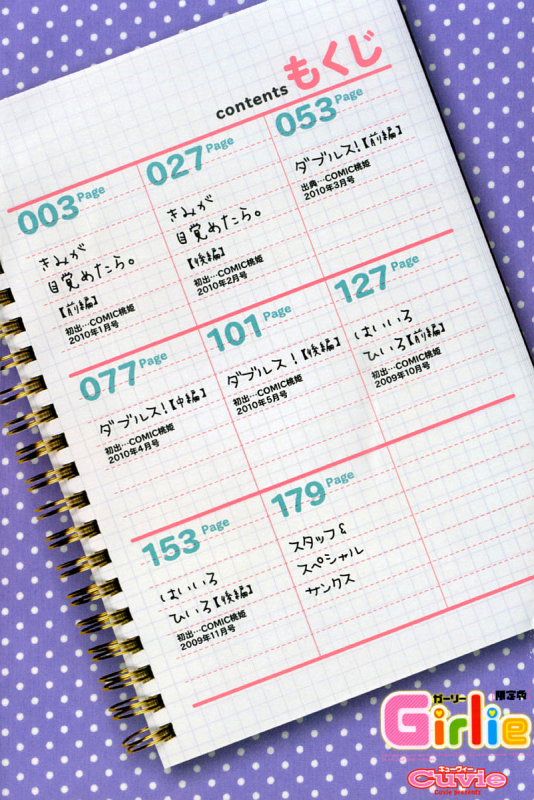 contents もくじ
003 Page
きみが
目覚めたら。
【前編】
初出…COMIC桃姫
2010年1月号
027 Page
きみが
目覚めたら。
【後編】
初出…COMIC桃姫
2010年2月号
053 Page
ダブルス!【前編】
出典…COMIC桃姫
2010年3月号
077 Page
ダブルス!【中編】
初出…COMIC桃姫
2010年4月号
101 Page
ダブルス!【後編】
初出…COMIC桃姫
2010年5月号
127 Page
はいいろ
ひいろ【前編】
初出…COMIC桃姫
2009年10月号
153 Page
はいいろ
ひいろ【後編】
初出…COMIC桃姫
2009年11月号
179 Page
スタッフ&
スペシャル
サンクス
ガーリー
Girlie
キューヴィー
Cuvie
Cuvie presents